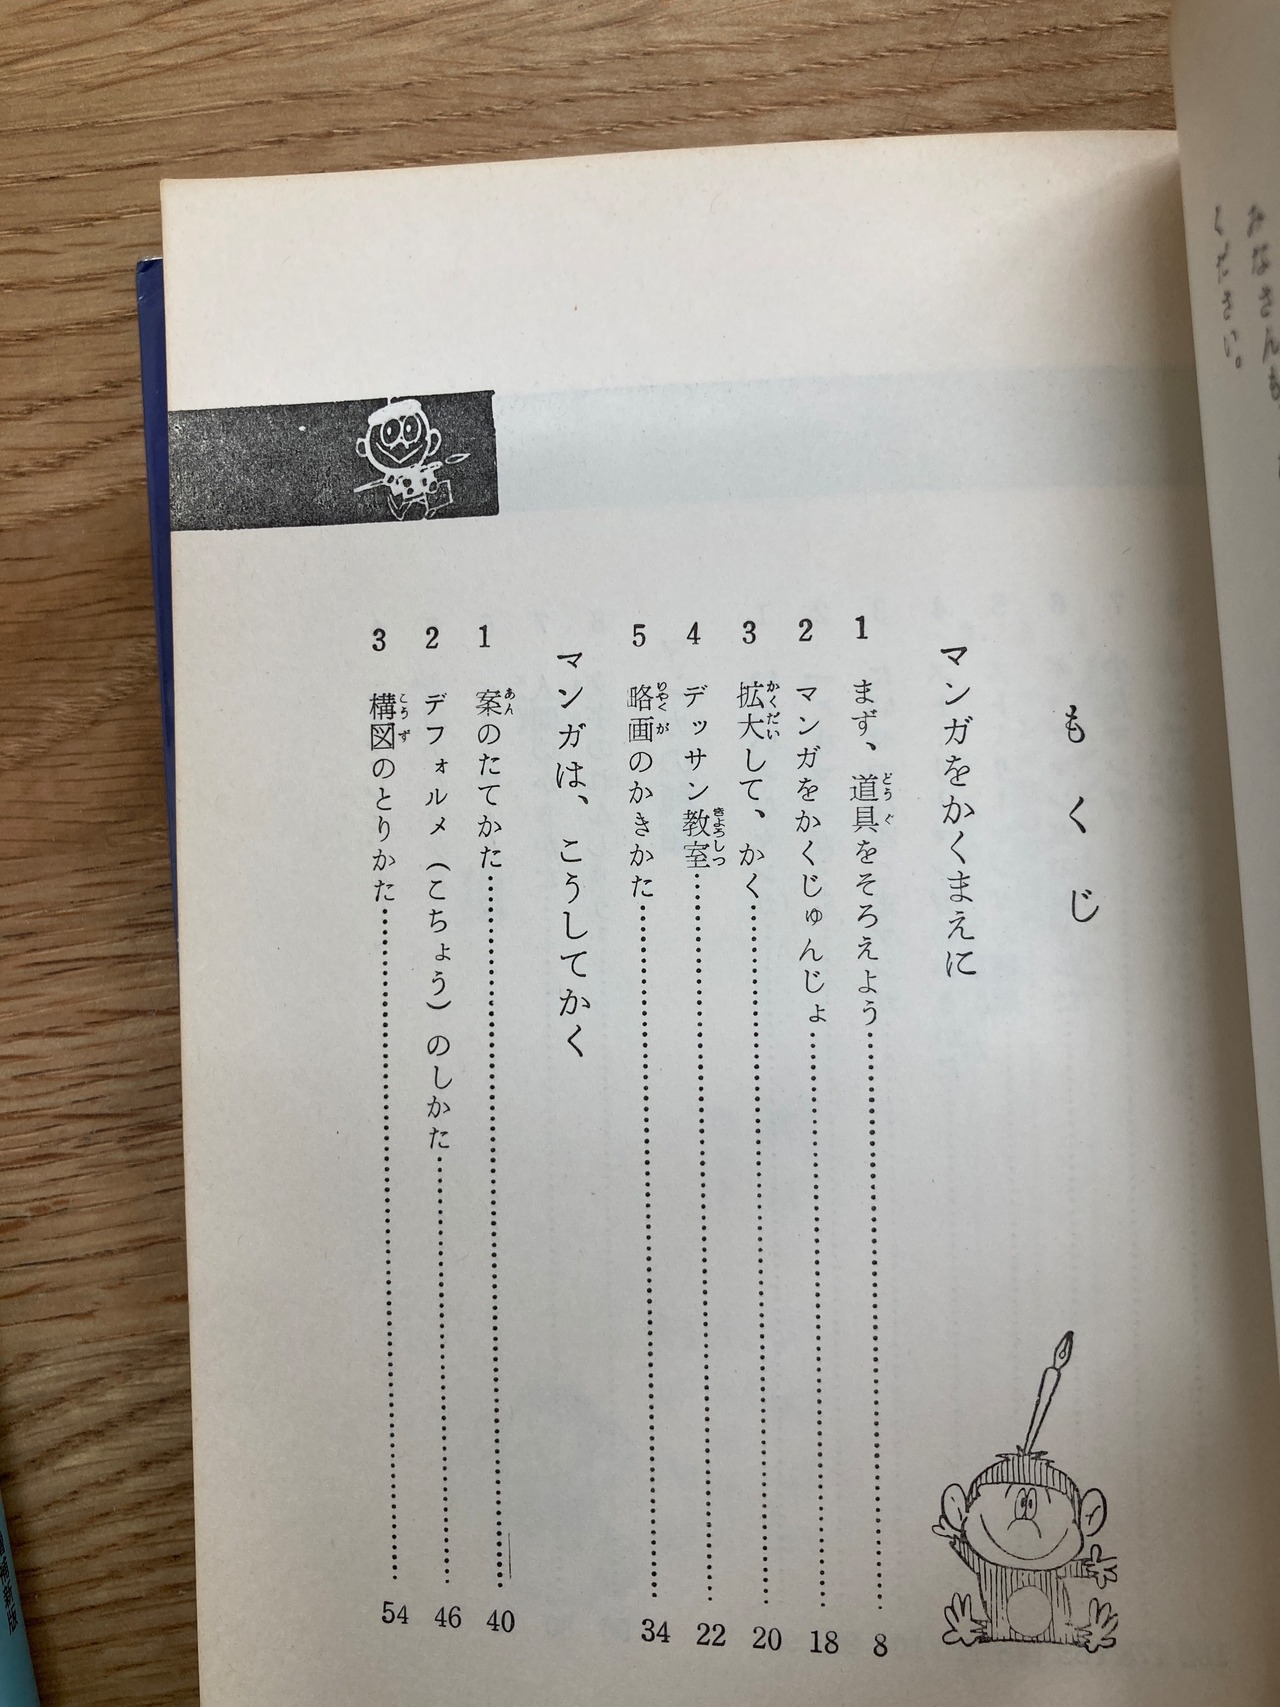 みなさんも
ください。
もくじ
マンガをかくまえに
1 まず、道具をそろえよう 8
2 マンガをかくじゅんじょ 18
3 拡大して、かく 20
4 デッサン教室 22
5 略画のかきかた 34
マンガは、こうしてかく
1 案のたてかた 40
2 デフォルメ（こちょう）のしかた 46
3 構図のとりかた 54
新版